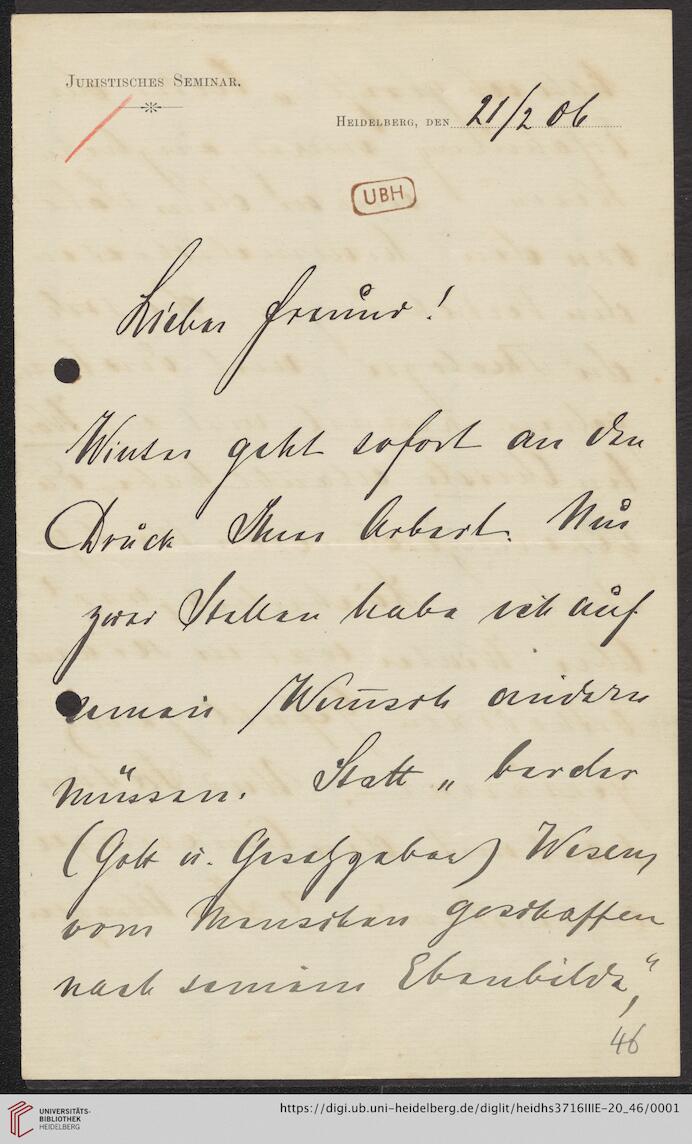 JURISTISCHES SEMINAR.
HEIDELBERG, DEN 21/2 06
UBH
Lieber Freund!
Winter geht sofort an den
Druck Ihrer Arbeit. Nur
zwei Stellen habe ich auf
Wunsch ändern
müssen. Statt „beider
(Gott u. Gesetzgeber) Wesen,
vom Menschen geschaffen
nach seinem Ebenbilde“,
46
UNIVERSITÄTS-
BIBLIOTHEK
HEIDELBERG
https://digi.ub.uni-heidelberg.de/diglit/heidhs3716IIIE-20_46/0001